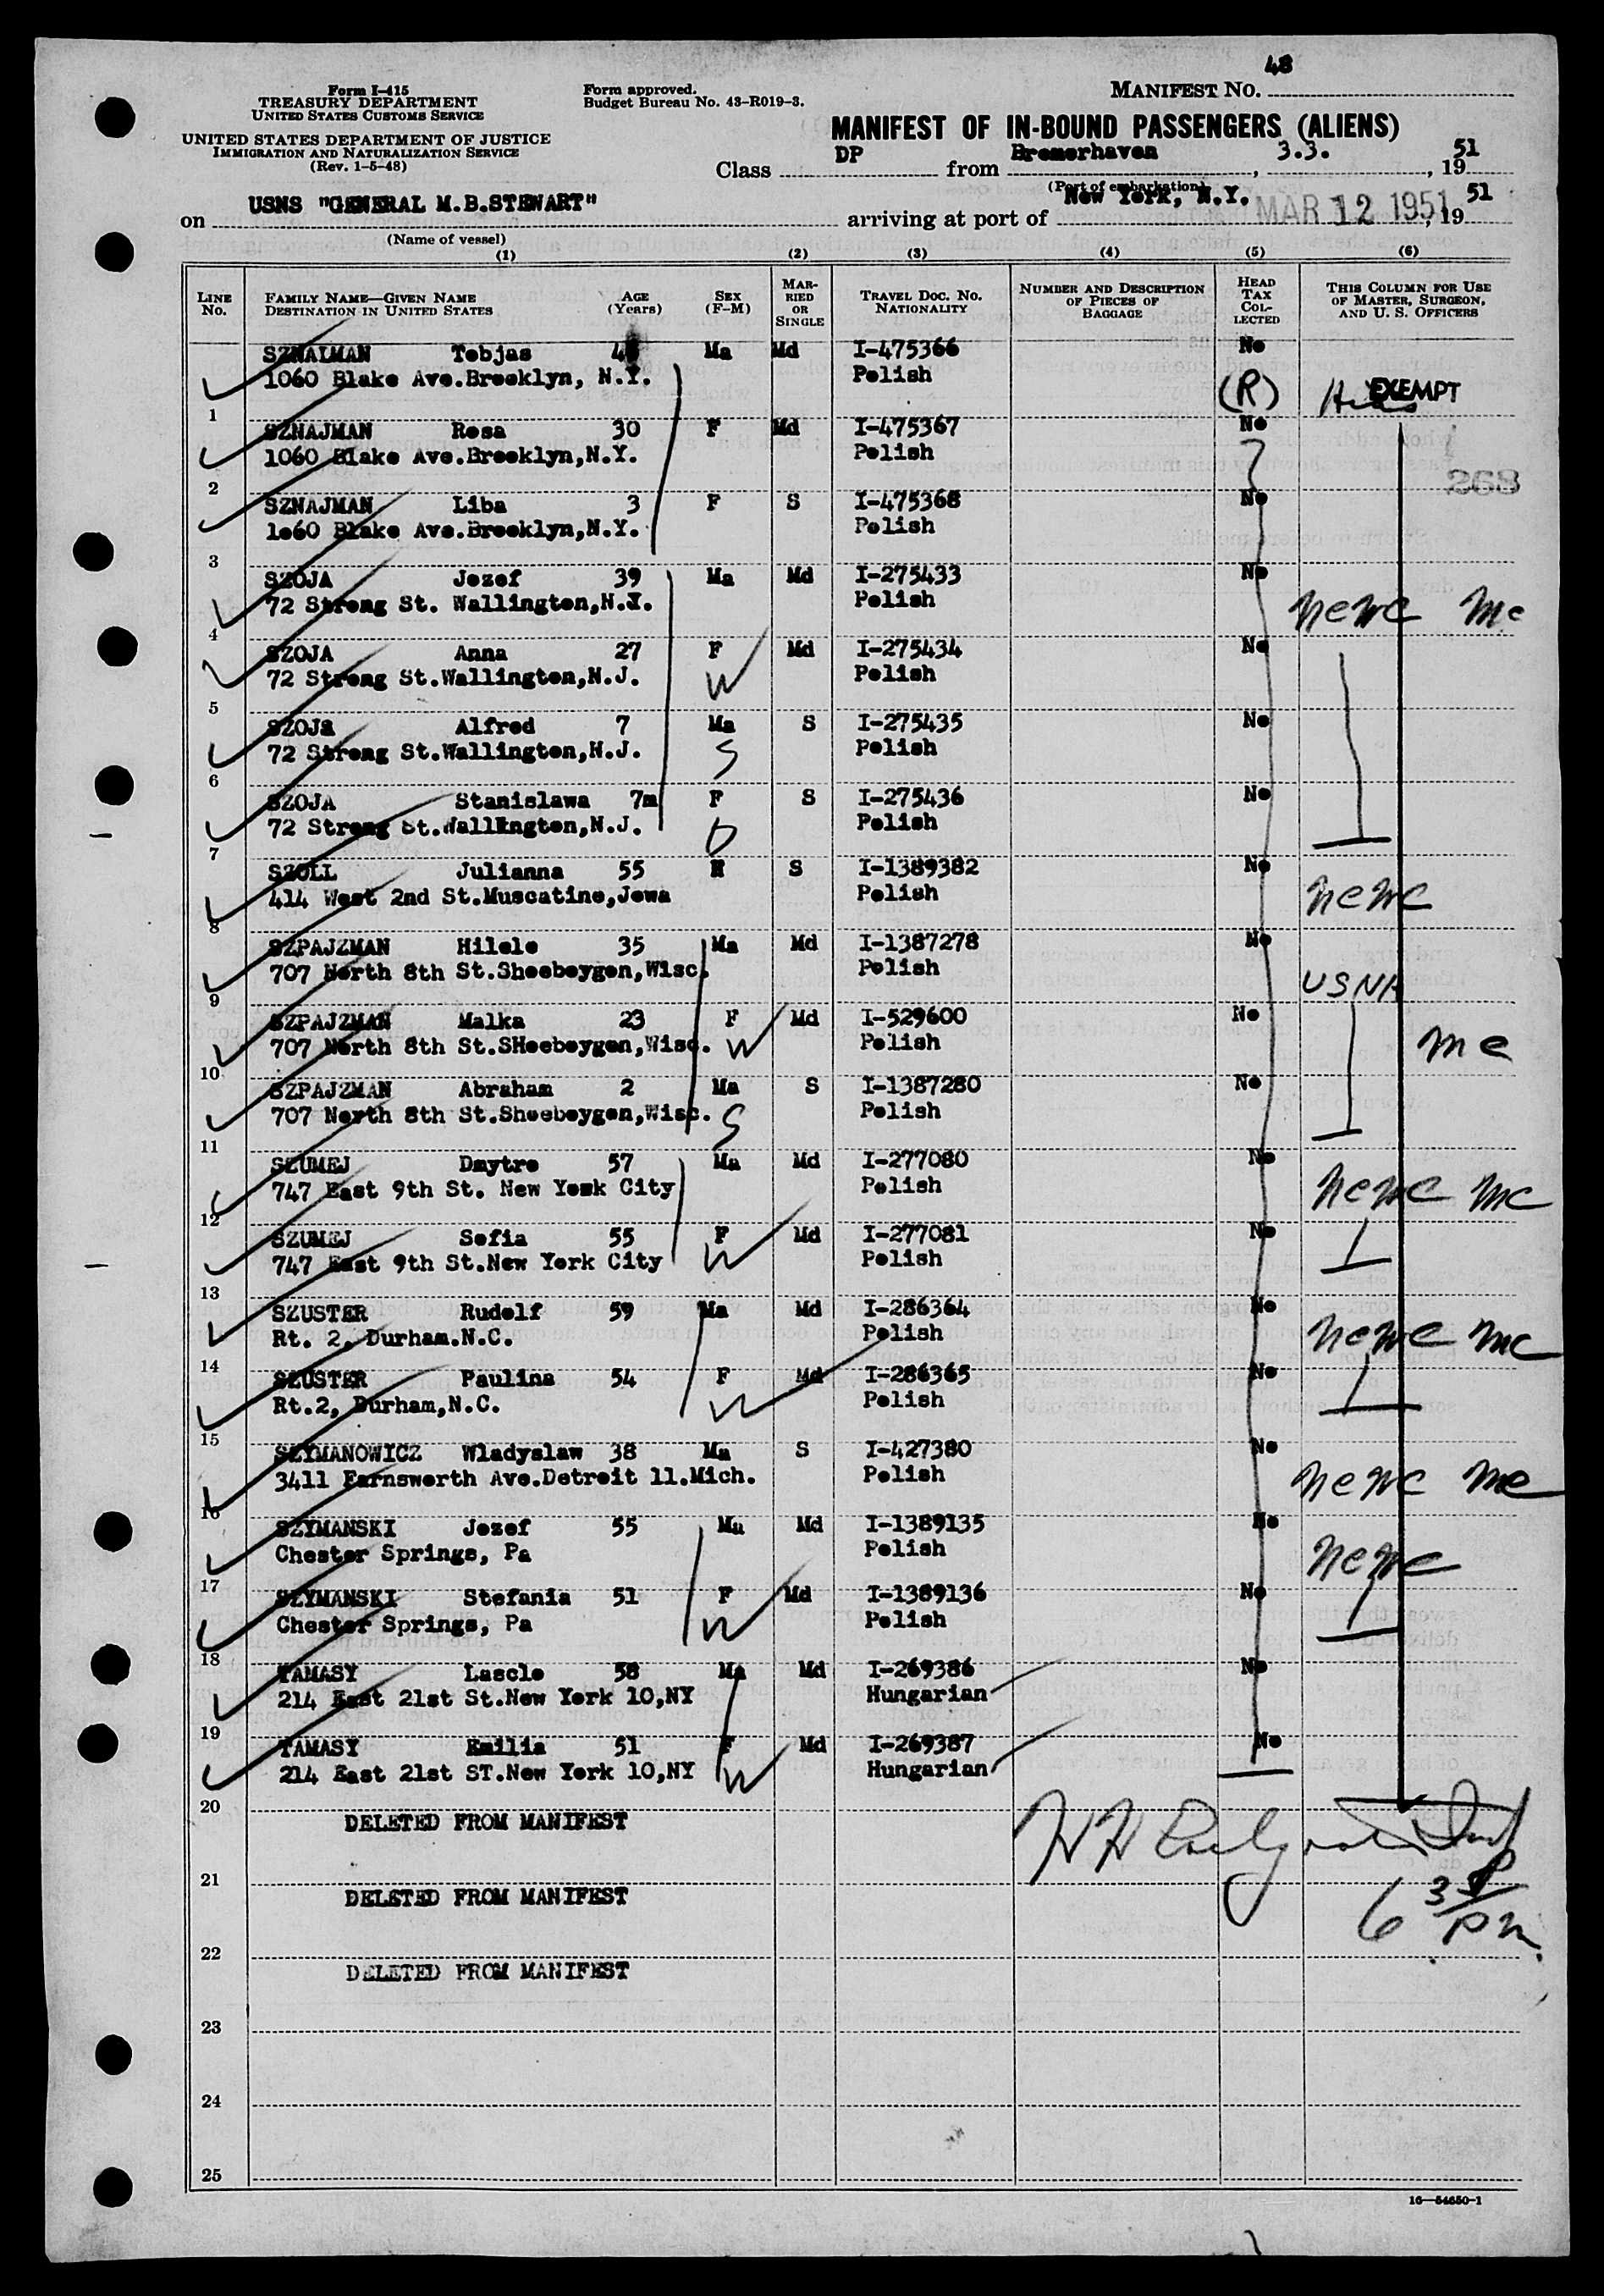 48
Form I-415
TREASURY DEPARTMENT
UNITED STATES CUSTOMS SERVICE
Form approved.
Budget Bureau No. 43-R019-3.
MANIFEST NO.
UNITED STATES DEPARTMENT OF JUSTICE
IMMIGRATION AND NATURALIZATION SERVICE
(Rev. 1-5-48)
MANIFEST OF IN-BOUND PASSENGERS (ALIENS)
Class DP from Bremerhaven, 3.3., 1951
(Port of embarkation)
on USNS "GENERAL M.B.STEWART" arriving at port of New York, N.Y. MAR 12 1951, 1951
(Name of vessel)
(1) (2) (3) (4) (5) (6)
LINE No. FAMILY NAME—GIVEN NAME DESTINATION IN UNITED STATES AGE (Years) SEX (F-M) MARRIED OR SINGLE TRAVEL DOC. NO. NATIONALITY NUMBER AND DESCRIPTION OF PIECES OF BAGGAGE HEAD TAX COLLECTED THIS COLUMN FOR USE OF MASTER, SURGEON, AND U. S. OFFICERS
SZNAIMAN Tobjas Ma Md I-475366 No
1060 Blake Ave.Brooklyn, N.Y. Polish (R) Hias EXEMPT
1
SZNAJMAN Rosa 30 F Md I-475367 No
1060 Blake Ave.Brooklyn,N.Y. Polish
268
2
SZNAJMAN Liba 3 F S I-475368 No
1o60 Blake Ave.Brooklyn,N.Y. Polish
3
SZOJA Jozef 39 Ma Md I-275433 No
72 Strong St. Wallington,N.J. Polish ncwc mc
4
SZOJA Anna 27 F Md I-275434 No
72 Strong St.Wallington,N.J. W Polish
5
SZOJa Alfred 7 Ma S I-275435 No
72 Strong St.Wallington,N.J. S Polish
6
SZOJA Stanislawa 7m F S I-275436 No
72 Strong St.Wallington,N.J. D Polish
7
SZOLL Julianna 55 S I-1389382 No
414 West 2nd St.Muscatine,Jowa Polish ncwc
8
SZPAJZMAN Hilele 35 Ma Md I-1387278 No
707 North 8th St.Sheeboygen,Wisc. Polish USNA
9
SZPAJZMAN Malka 23 F Md I-529600 No
707 North 8th St.SHeeboygen,Wisc. W Polish mc
10
SZPAJZMAN Abraham 2 Ma S I-1387280 No
707 North 8th St.Sheeboygen,Wisc. S Polish
11
SZUMEJ Dmytro 57 Ma Md I-277080 No
747 East 9th St. New York City Polish ncwc mc
12
SZUMEJ Sofia 55 F Md I-277081 No
747 East 9th St.New York City W Polish
13
SZUSTER Rudolf 59 Ma Md I-286364 No
Rt. 2, Durham.N.C. Polish ncwc mc
14
SZUSTER Paulina 54 F Md I-286365 No
Rt.2, Durham,N.C. W Polish
15
SZYMANOWICZ Wladyslaw 38 Ma S I-427380 No
3411 Farnsworth Ave.Detroit 11.Mich. Polish ncwc mc
16
SZYMANSKI Jozef 55 Ma Md I-1389135 No
Chester Springs, Pa Polish ncwc
17
SZYMANSKI Stefania 51 F Md I-1389136 No
Chester Springs, Pa W Polish
18
TAMASY Lascle 58 Ma Md I-269386 No
214 East 21st St.New York 10,NY Hungarian
19
TAMASY Emilia 51 F Md I-269387 No
214 East 21st ST.New York 10,NY W Hungarian
20
DELETED FROM MANIFEST
21
DELETED FROM MANIFEST
6 pm
22
DELETED FROM MANIFEST
23
24
25
16—54650-1